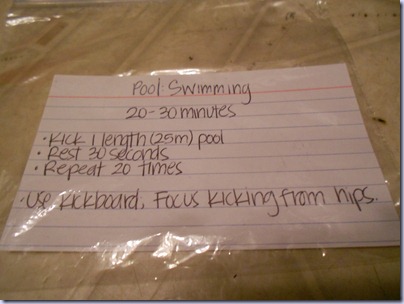 Pool: Swimming
20-30 minutes
• Kick 1 length (25m) pool
• Rest 30 seconds
• Repeat 20 times
• Use kickboard, Focus kicking from hips.